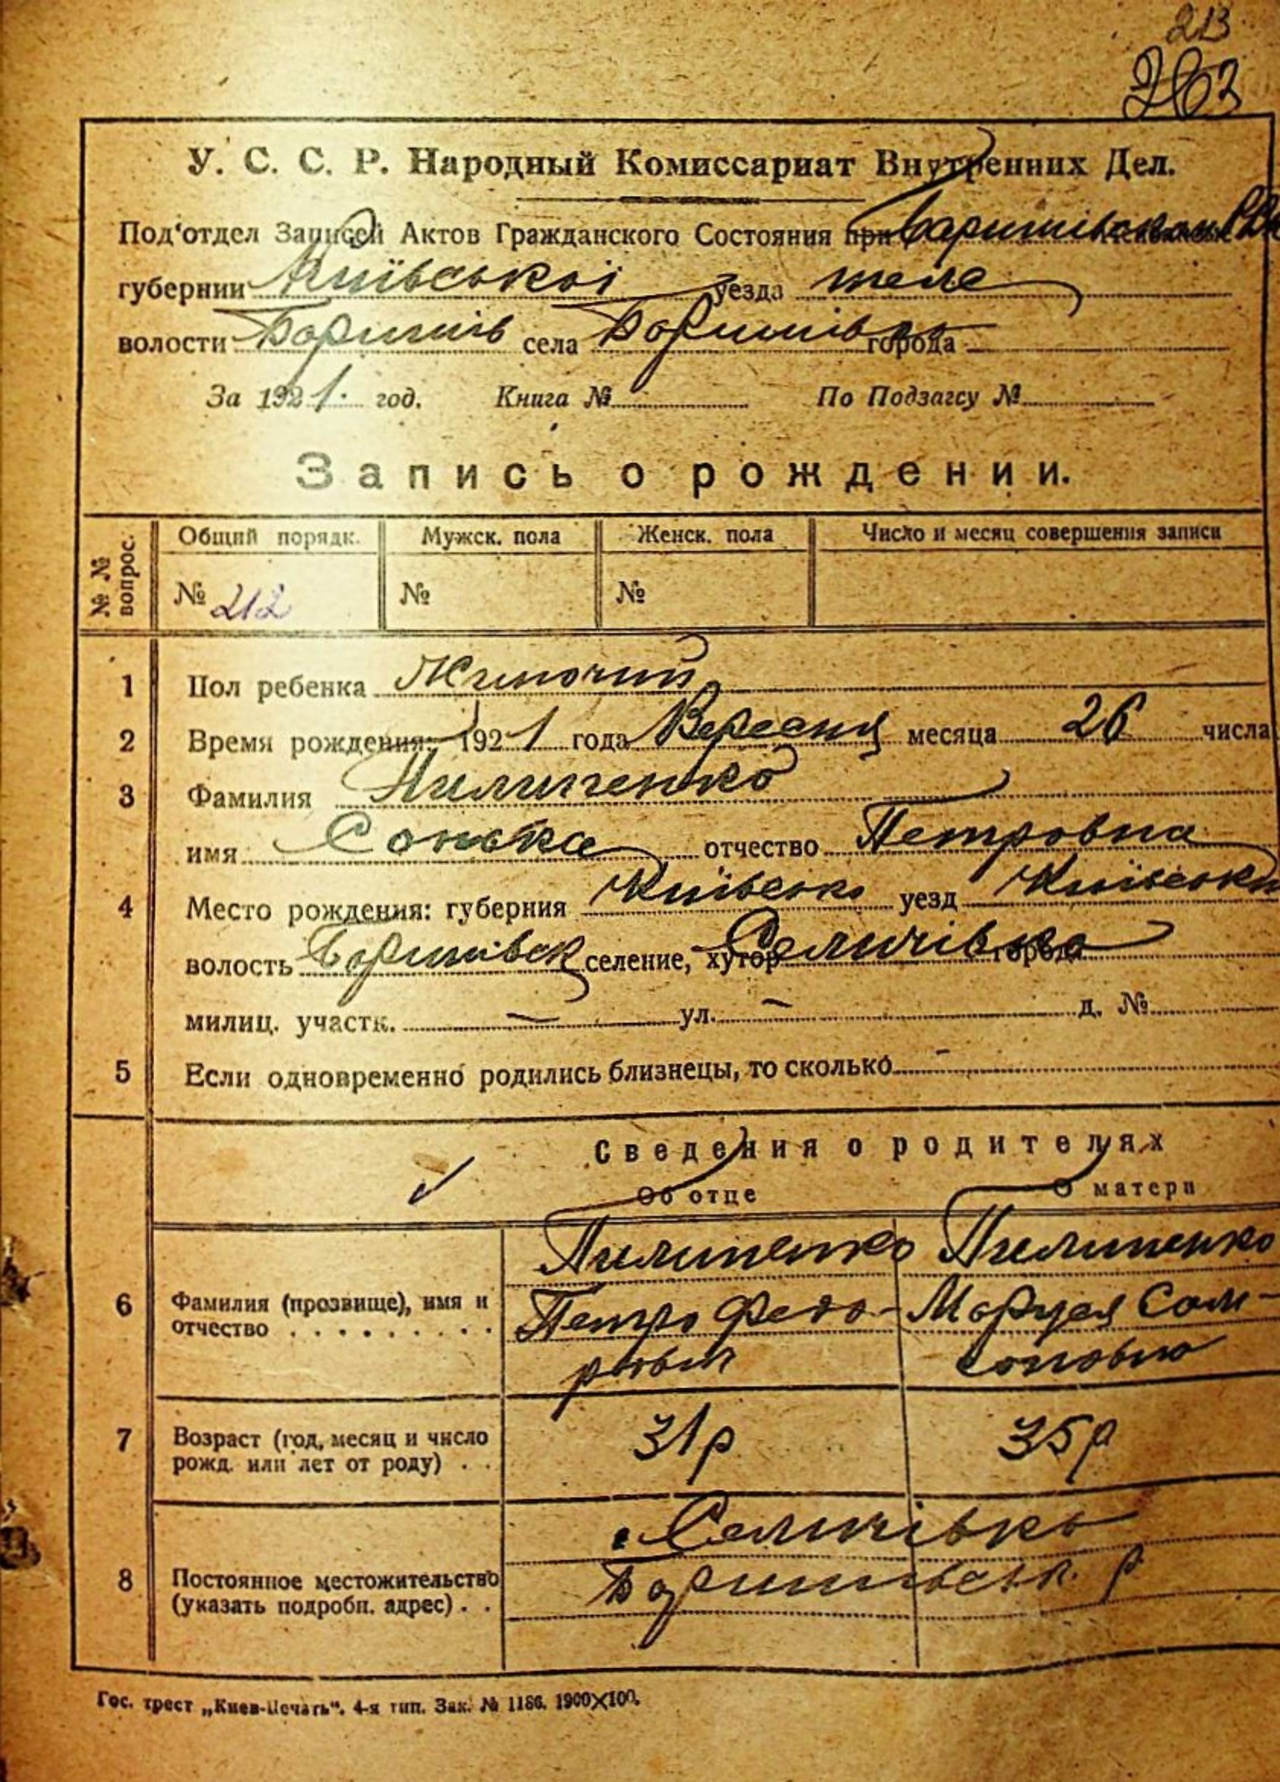 213
262
У. С. С. Р. Народный Комиссариат Внутренних Дел.
Под'отдел Записей Актов Гражданского Состояния при Баришівськом
губернии Київської уезда теле
волости Баришів села Баришівка города
За 1921. год. Книга № По Подзагсу №
Запись о рождении.
№ № вопрос. Общий порядк. Мужск. пола Женск. пола Число и месяц совершения записи
№ 212 № №
1 Пол ребенка Жиночий
2 Время рождения: 1921 года Вересня месяца 26 числа
3 Фамилия Пилипенко
имя Сонька отчество Петровна
4 Место рождения: губерния Київсько уезд Київськи
волость Баришівск селение, хутор Селичівка города
милиц. участк. — ул. — д. №
5 Если одновременно родились близнецы, то сколько —
Сведения о родителях
Об отце О матери
Пилипенко Пилипенко
6 Фамилия (прозвище), имя и отчество Петро Федо- Маруся Сам-
ровыч соновна
7 Возраст (год, месяц и число рожд. или лет от роду) 31р 35р
Селичівка
8 Постоянное местожительство (указать подробн. адрес) Баришівськ. р
Гос. трест „Киев-Печать". 4-я тип. Зак. № 1186. 1900×100.